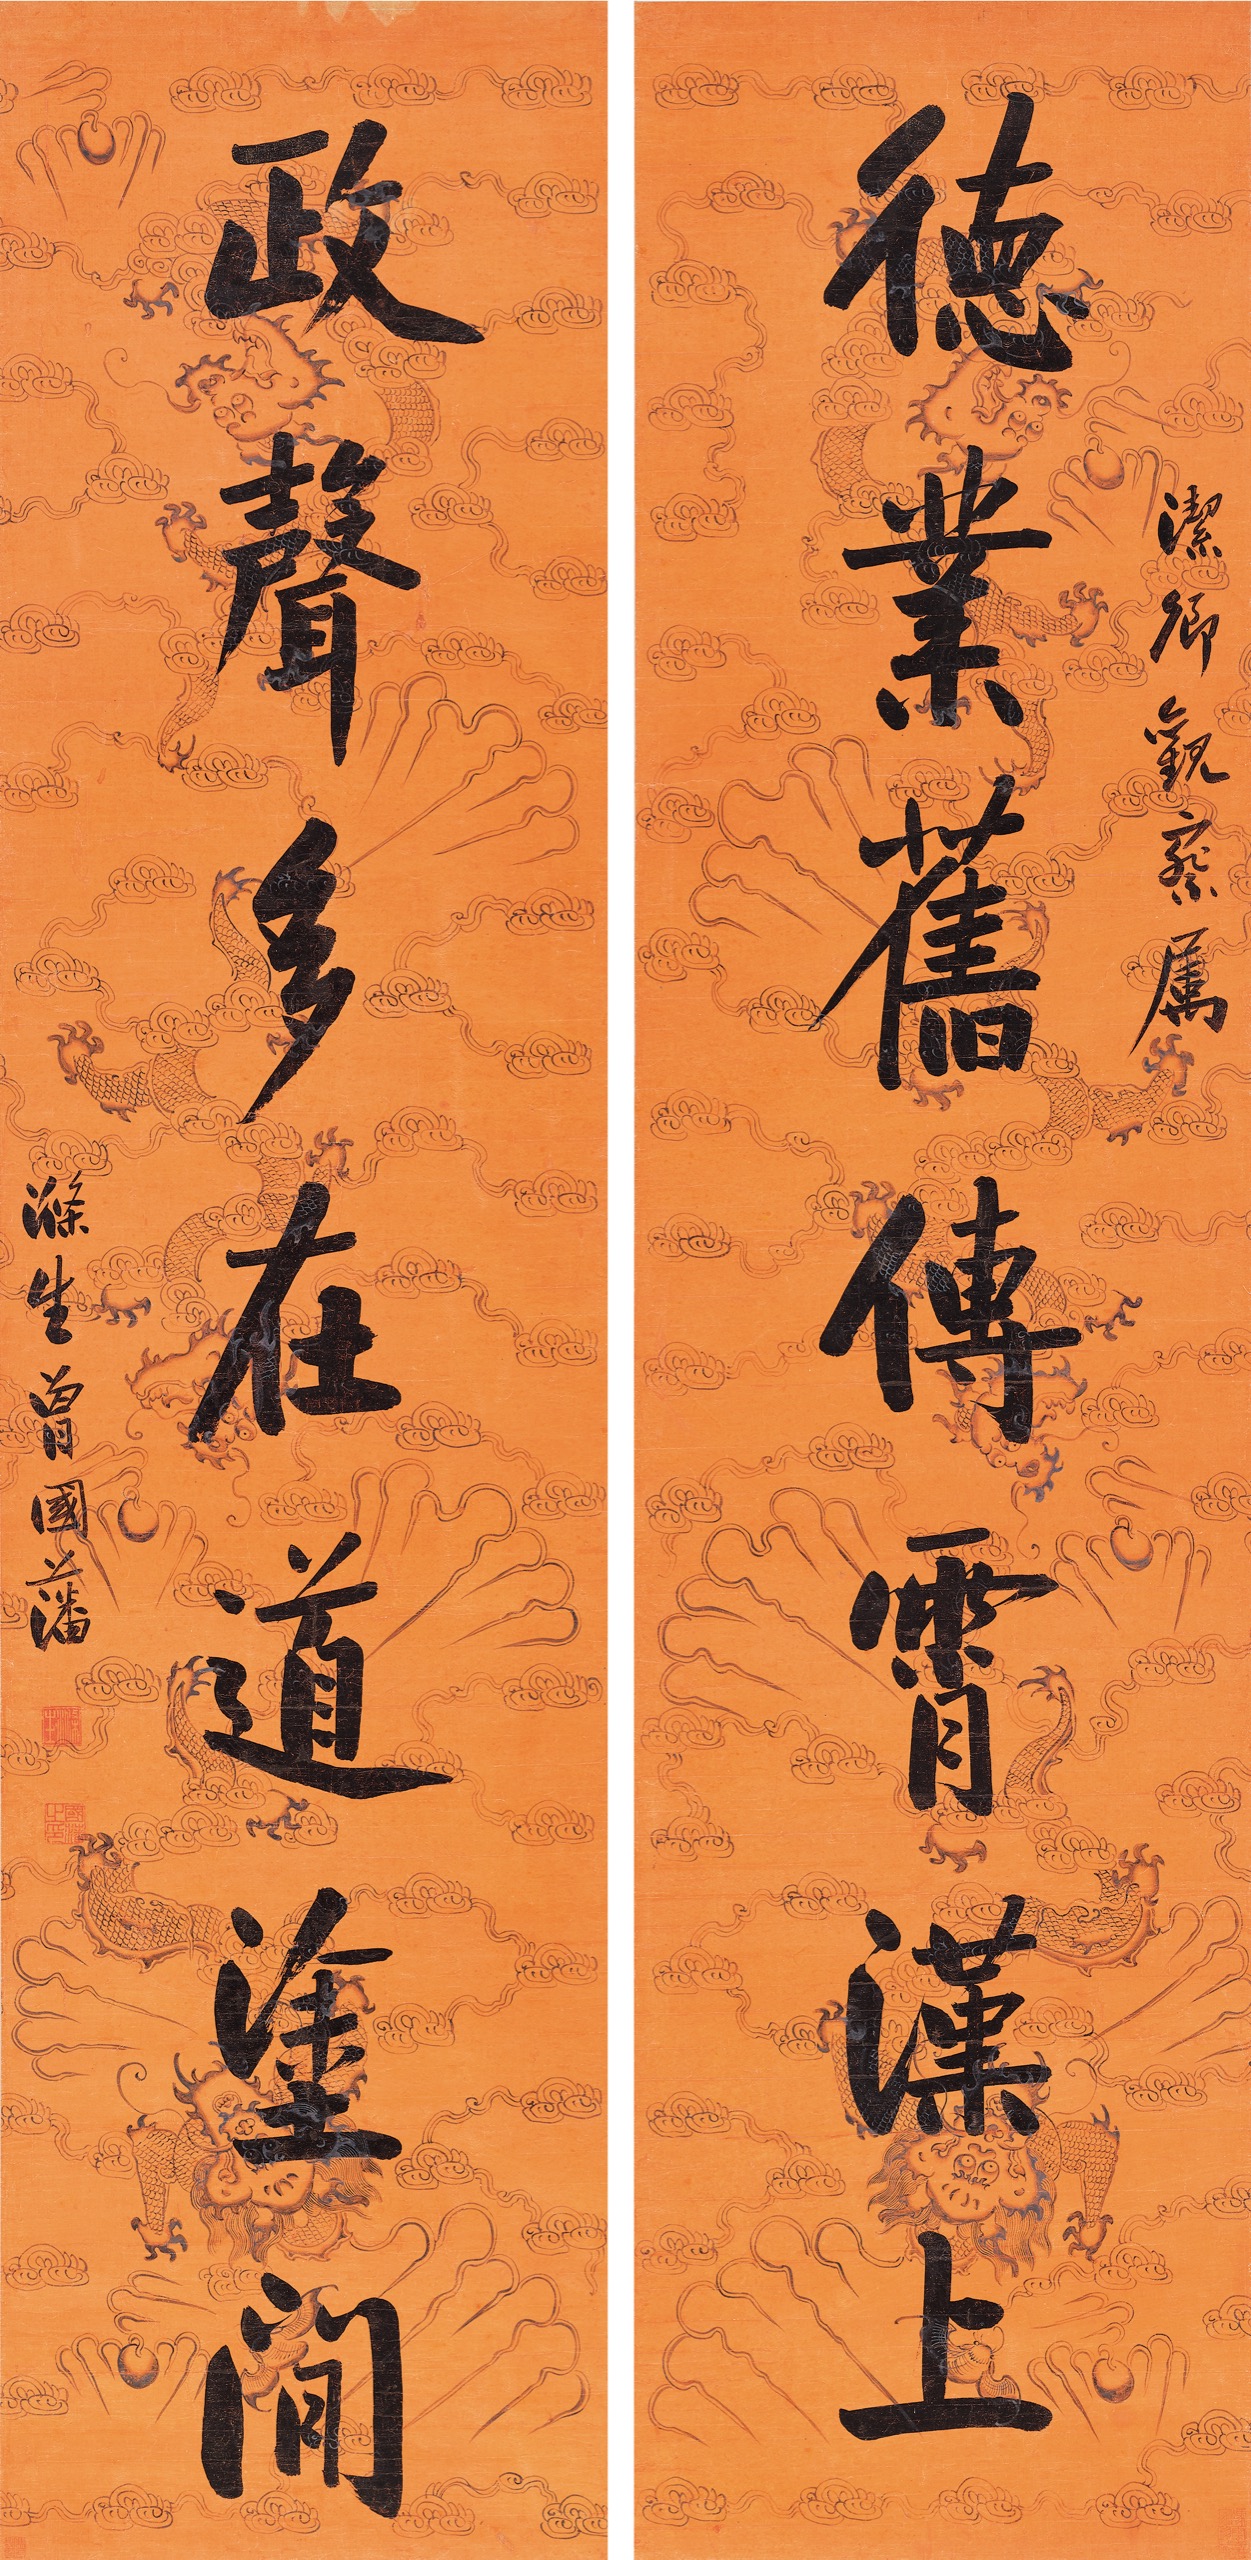 潔卿觀察屬
德業舊傳霄漢上
政聲多在道塗間
滌生曾國藩